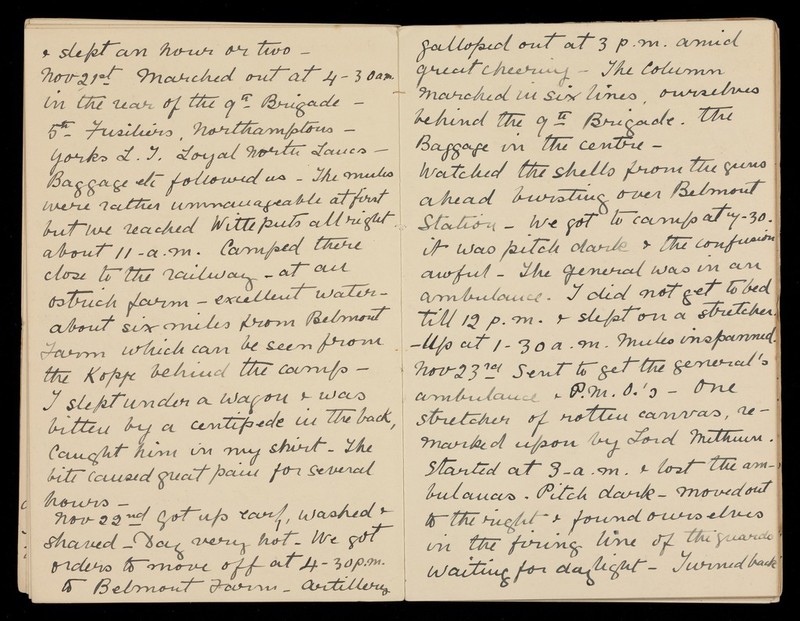 & slept an hour or two -
Nov 21st Marched out at 4-30 am
in the rear of the 9th Brigade -
5th Fusiliers, Northamptons -
Yorks L. I. Loyal North Lancs -
Baggage etc followed us - The mules
were rather unmanageable at first
but we reached Witteputs all right
about 11-a.m. Camped there
close to the railway - at an
ostrich farm - excellent water -
about six miles from Belmont
Farm which can be seen from
the Kopje behind the camp -
I slept under a wagon & was
bitten by a centipede in the back,
Caught him in my shirt - The
bite caused great pain for several
hours -
Nov 22nd Got up early, washed &
shaved - Day very hot - We got
orders to move off at 4-30 p.m.
to Belmont Farm - Artillery
galloped out at 3 p.m. amid
great cheering - The Column
marched in six lines, ourselves
behind the 9th Brigade. the
Baggage in the centre -
Watched the shells from the guns
ahead bursting over Belmont
Station - We got to camp at 7-30.
it was pitch dark & the confusion
awful - The general was in an
ambulance. I did not get to bed
till 12 p.m. & slept on a stretcher.
- Up at 1-30 a.m. Mules inspanned.
Nov 23rd Sent to get the general's
ambulance & P.M.O.'s - One
stretcher of rotten canvas, re-
marked upon by Lord Methuen.
Started at 3-a.m. & lost the am-
bulances. Pitch dark - moved out
to the right & found ourselves
in the firing line of the guards
waiting for daylight - Turned back